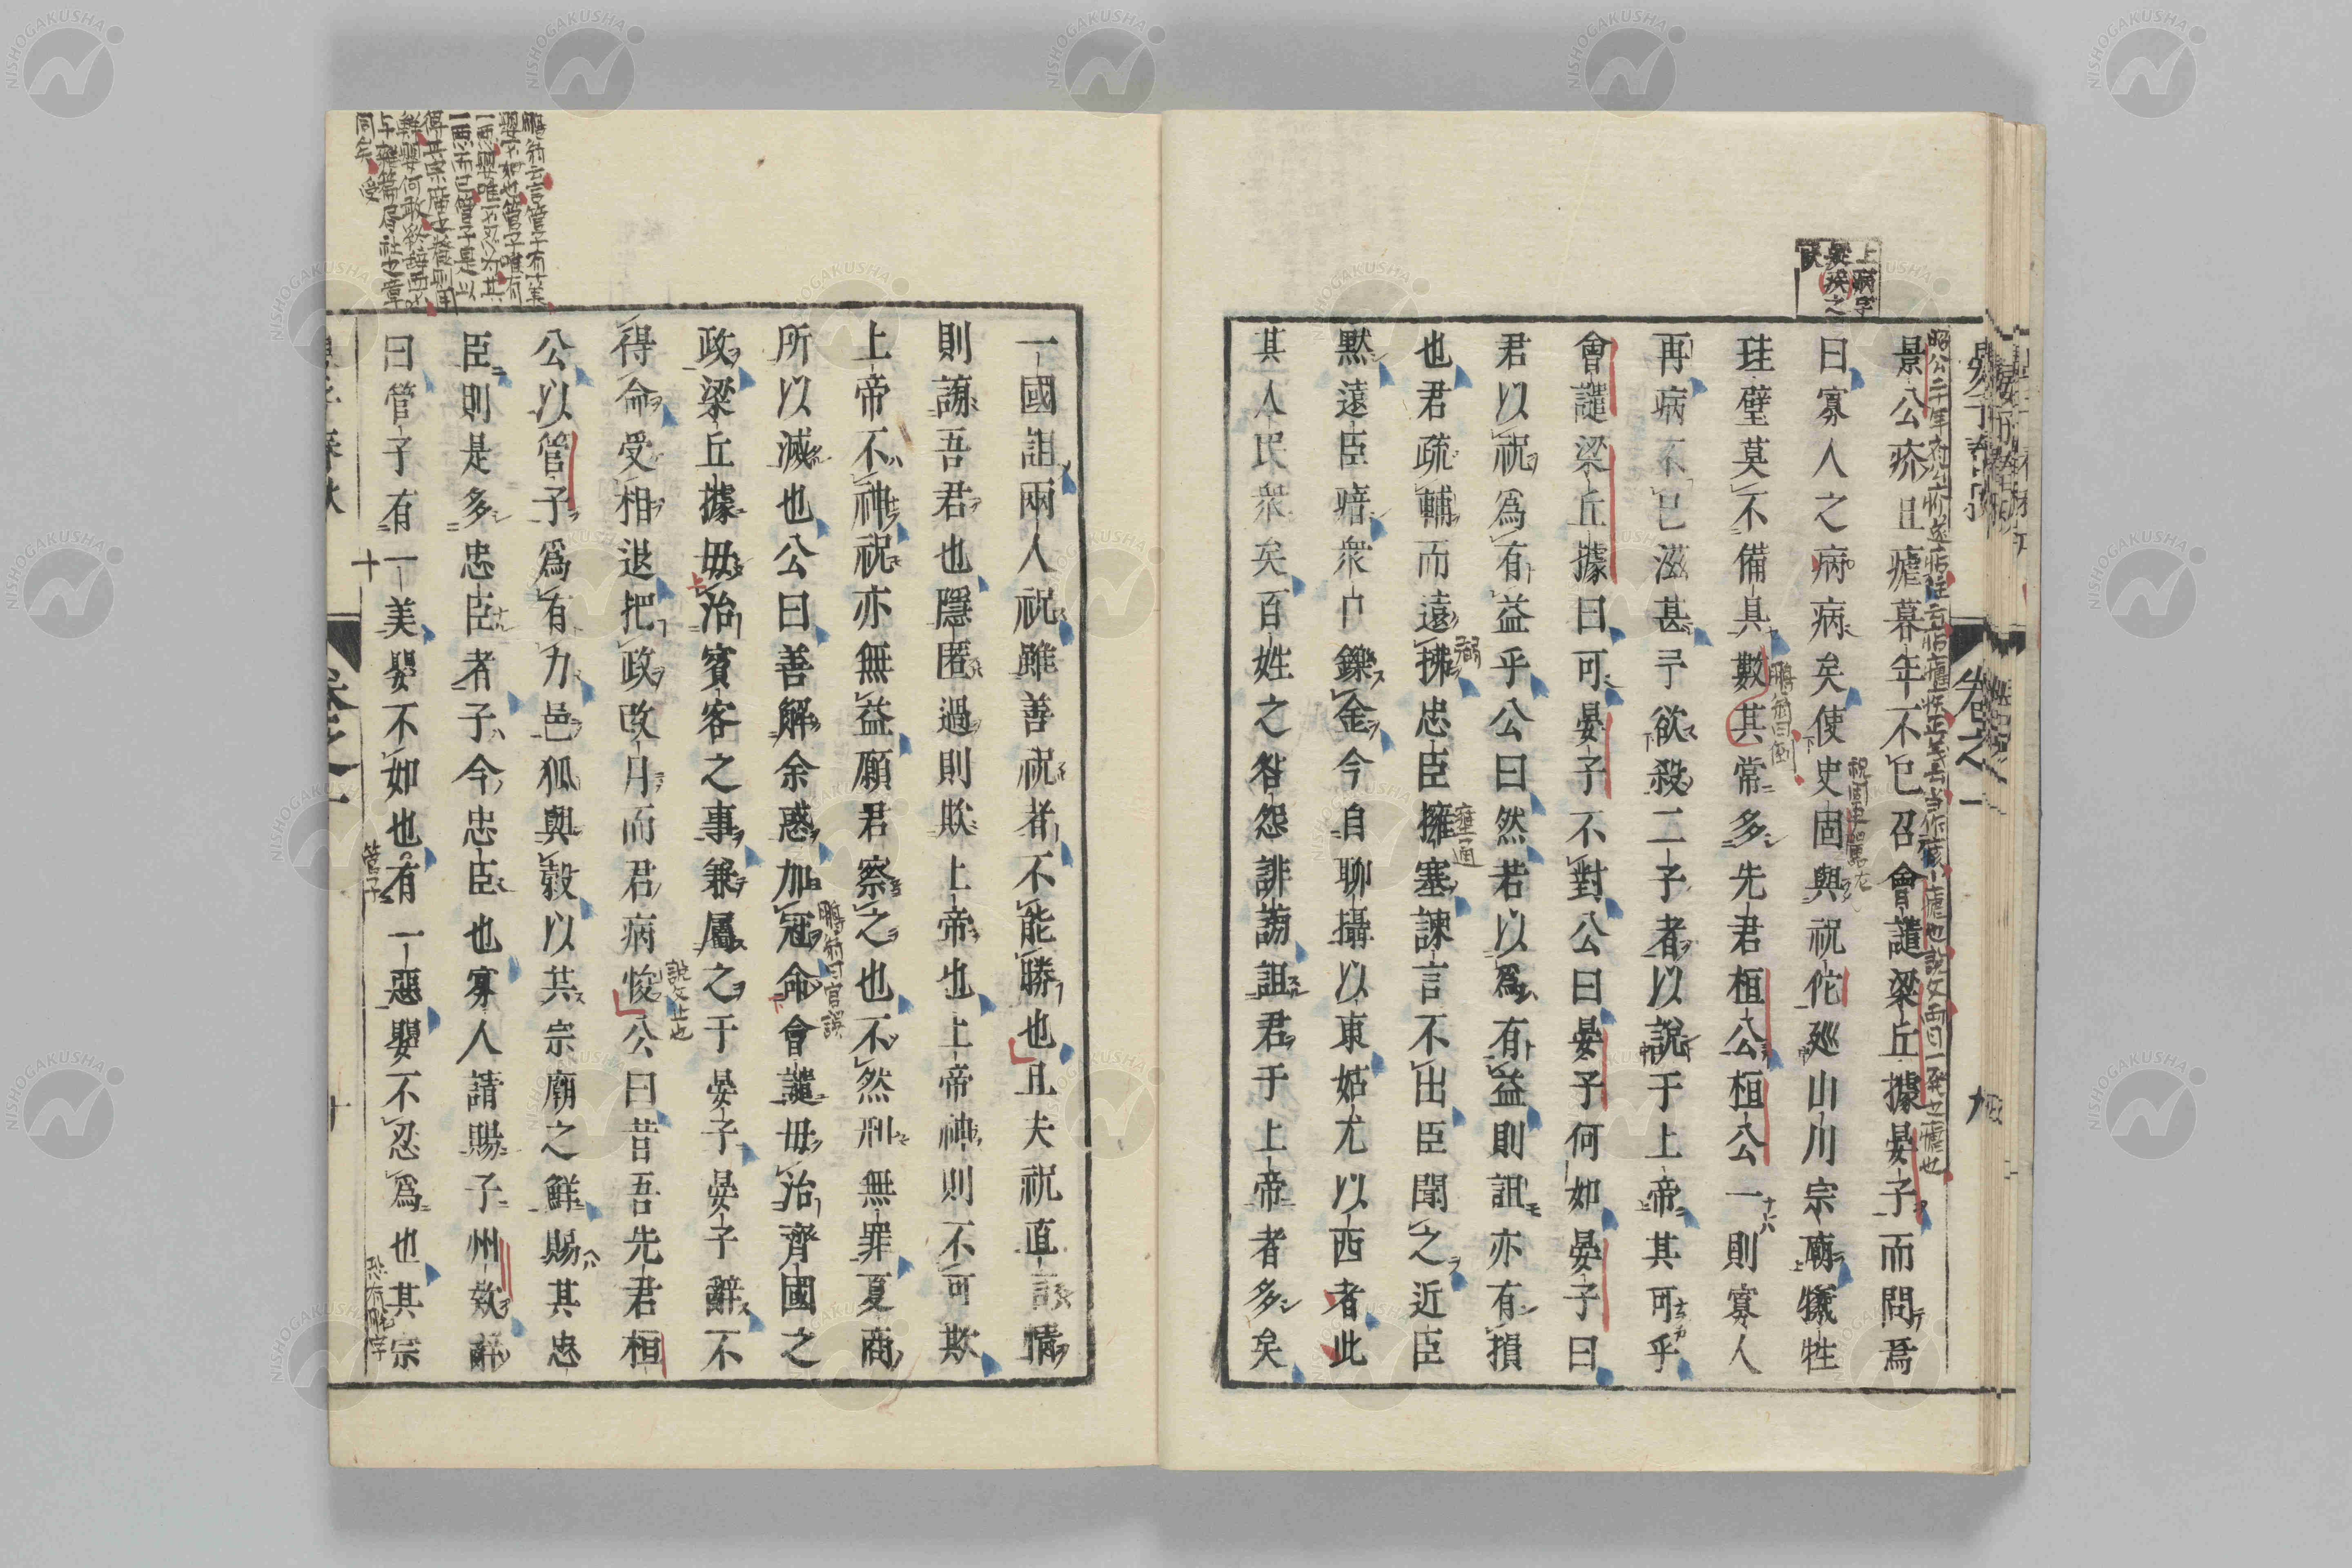 景公疥且瘧暮年不已召會譴梁丘據晏子而問焉
曰寡人之病病矣使史固與祝佗廵山川宗廟犧牲
珪璧莫不備具數其常多先君桓公桓公一則寡人
再病不已滋甚予欲殺二子者以說于上帝其可乎
會譴梁丘據曰可晏子不對公曰晏子何如晏子曰
君以祝爲有益乎公曰然若以爲有益則詛亦有損
也君疏輔而遠拂忠臣擁塞諫言不出臣聞之近臣
默遠臣瘖衆口鑠金今自聊攝以東姑尤以西者此
其人民衆矣百姓之咎怨誹謗詛君于上帝者多矣
上病字
疑疾之
誤
鵬翁曰倒
弼
壅通
卷之一
九
一國詛兩人祝雖善祝者不能勝也且夫祝直言情
則謗吾君也隱匿過則欺上帝也上帝神則不可欺
上帝不神祝亦無益願君察之也不然刑無罪夏商
所以滅也公曰善解余惑加冠命會譴毋治齊國之
政梁丘據毋治賓客之事兼屬之于晏子晏子辭不
得命受相退把政改月而君病悛公曰昔吾先君桓
公以管子爲有力邑狐與穀以共宗廟之鮮賜其忠
臣則是多忠臣者子今忠臣也寡人請賜子州欵辭
曰管子有一美嬰不如也有一惡嬰不忍爲也其宗
鵬翁曰官誤
說文止也
管子
恐有脫字